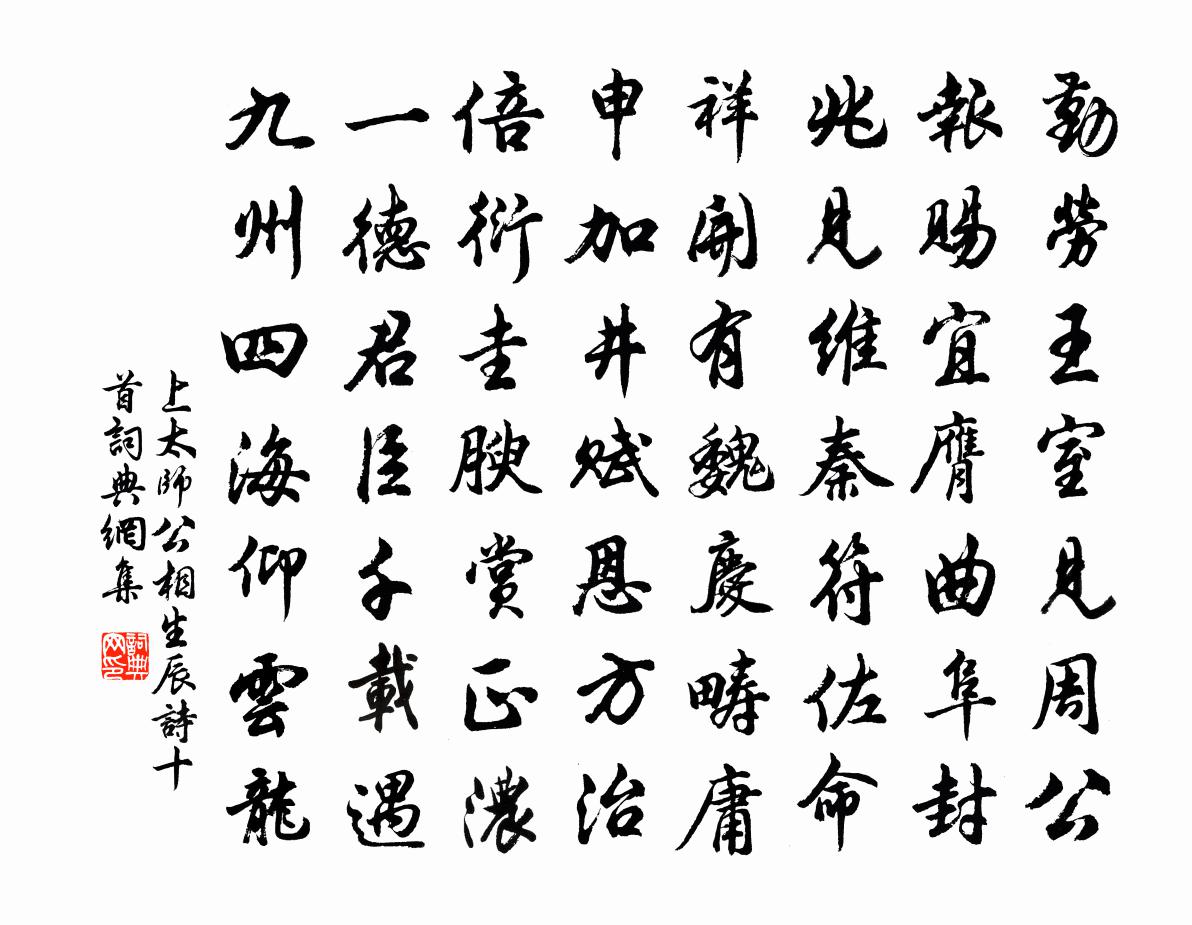 勤勞王室見周公
報賜宜膺曲阜封
兆見維秦符佐命
祥開有魏慶疇庸
申加井賦恩方洽
倍衍圭腴賞正濃
一德君臣千載遇
九州四海仰雲龍
上太師公相生辰詩十
首詞典網集
詞典
网印